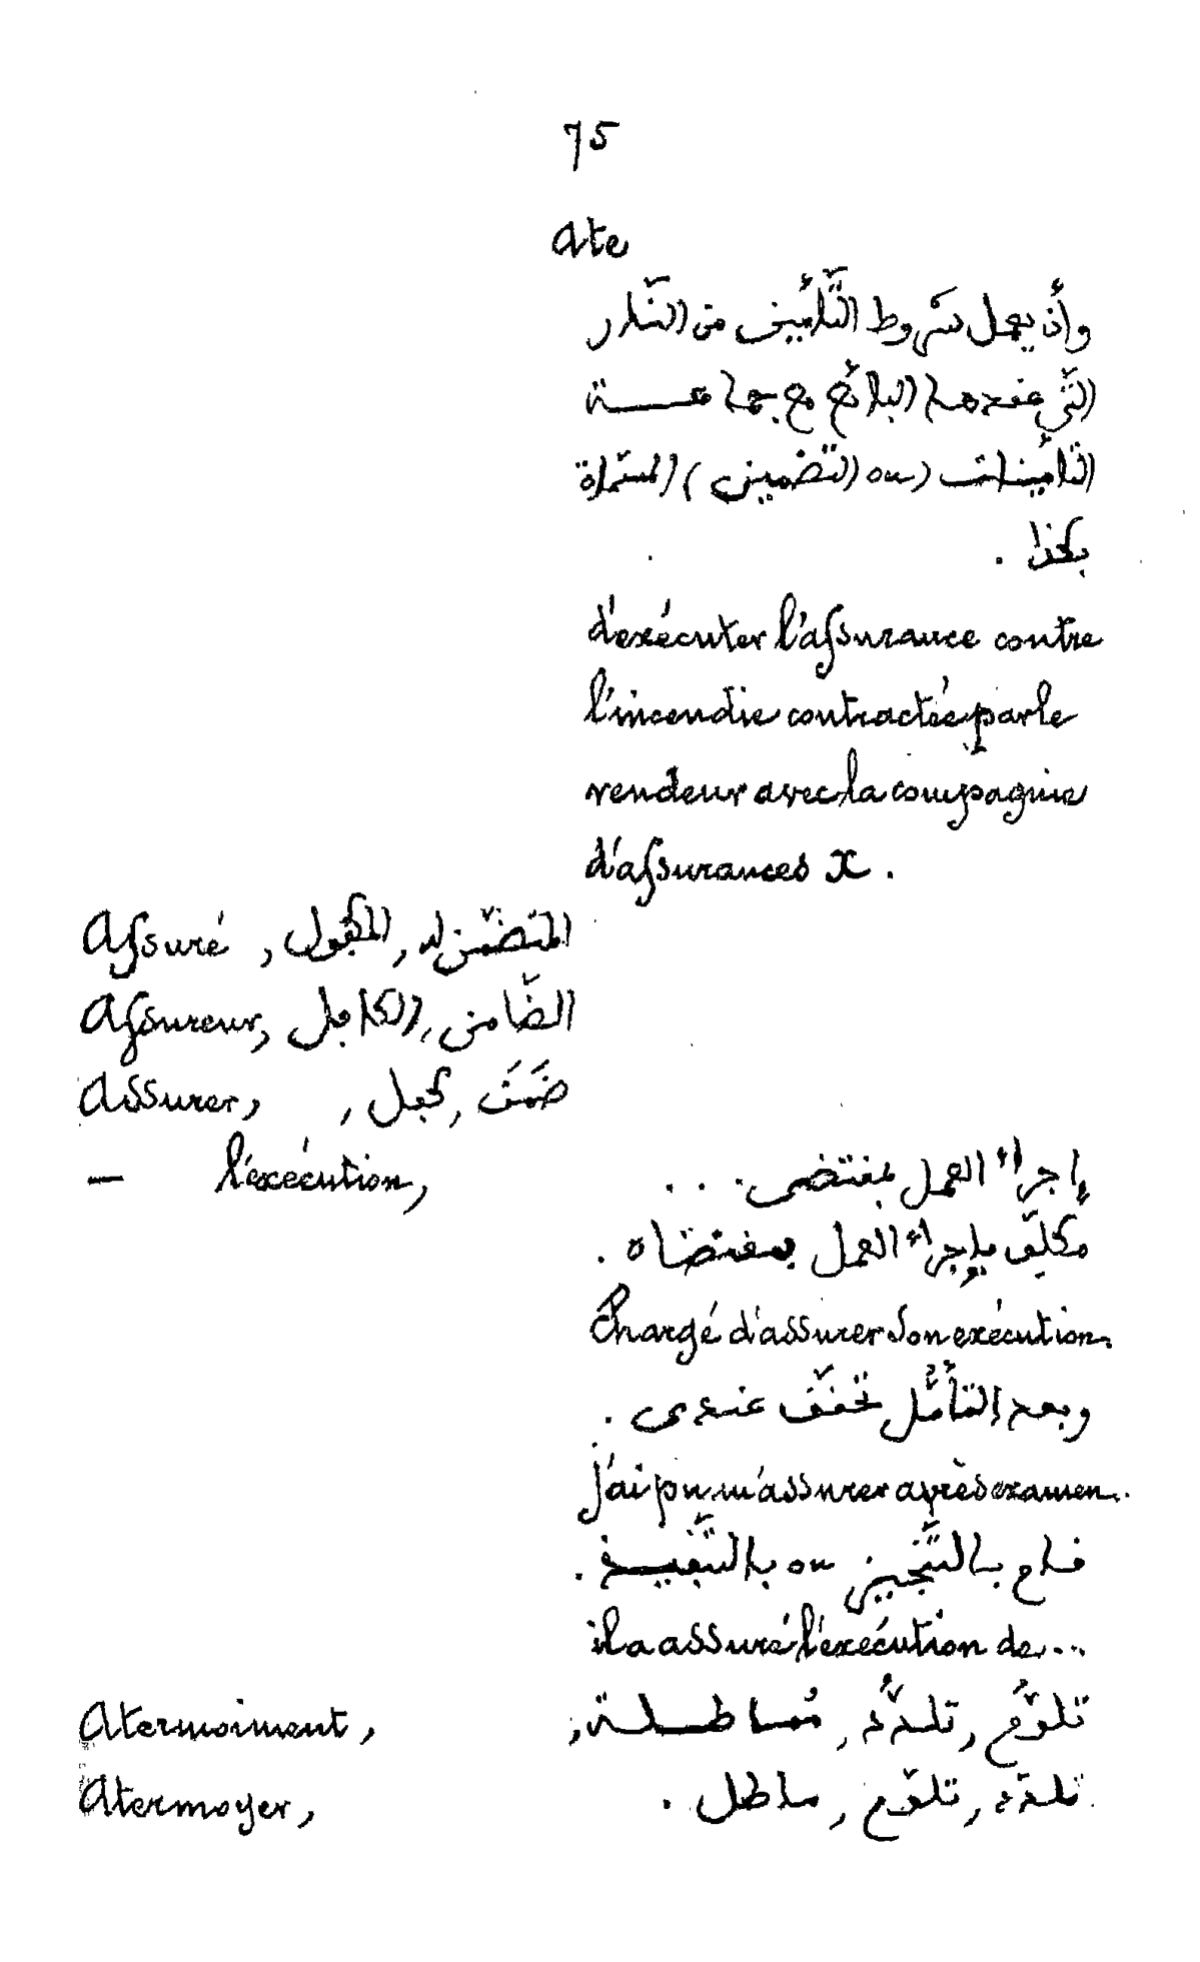 75
Ate
وأن يعمل بشروط التّأمين من النّار
التّي عقدها البائع مع جماعــة
التّأمينات (ou التّضمين) المسمّاة
بكذا .
d'exécuter l'assurance contre
l'incendie contractée par le
vendeur avec la compagnie
d'assurances X.
Assuré , المتضمّن له, المكفول
Assureur, الضّامن, الكافل
Assurer, ضَمَنَ, كفل ,
— l'exécution, إجراء العمل بمقتضى . . .
مكلّف بإجراء العمل بمقتضاه .
Chargé d'assurer son exécution.
وبعد التّأمُّل تحقّق عندى .
j'ai pu m'assurer après examen..
قام بالتّنجيز ou بالتّنفيـذ .
il a assuré l'exécution de...
Atermoiment, تلوُّم, تلدُّد, مُماطلـة,
Atermoyer, تلدّد, تلوّم, ماطل .